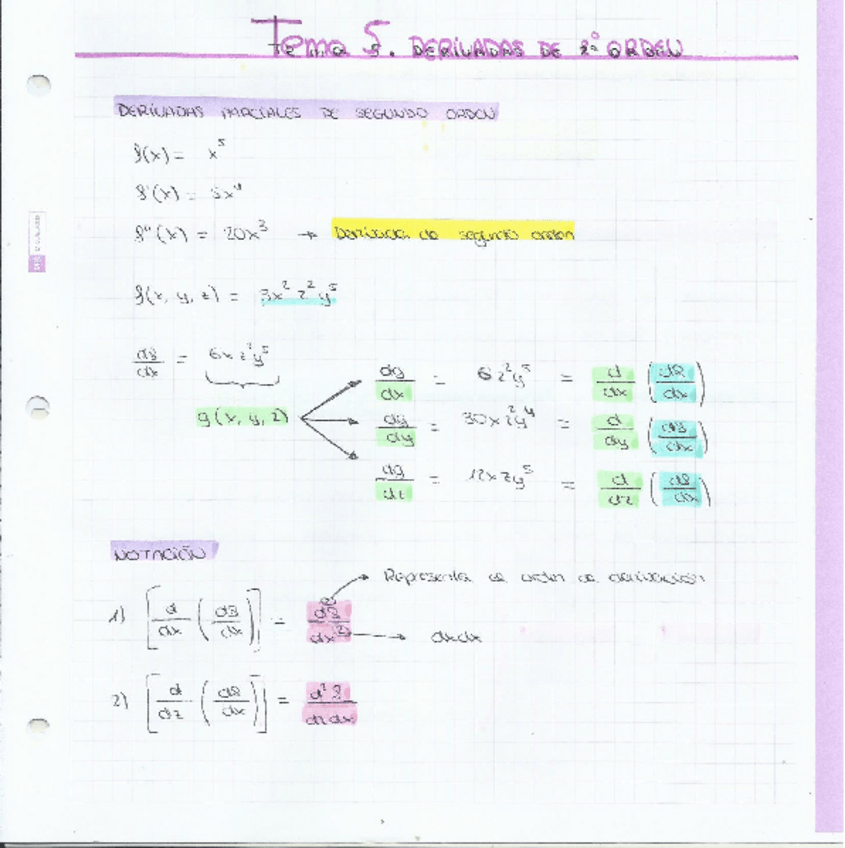 Tema 5. DERIVADAS DE 2º ORDEN
DERIVADAS PARCIALES DE SEGUNDO ORDEN
f(x) = x⁵
f'(x) = 5x⁴
f''(x) = 20x³ → Derivada de segundo orden
f(x, y, z) = 3x² z² y⁵
df/dx = 6xz²y⁵
g(x, y, z)
dg/dx = 6z²y⁵ = d/dx (df/dx)
dg/dy = 30xz²y⁴ = d/dy (df/dx)
dg/dz = 12xzy⁵ = d/dz (df/dx)
NOTACIÓN
→ Representa el orden de derivación
1) [d/dx (df/dx)] = d²f/dx² → dxdx
2) [d/dz (df/dx)] = d²f/dzdx